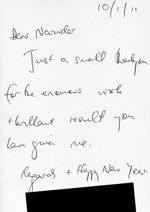 10/1/11
Dear Narinder
Just a small thankyou
for the enormous work
+ brilliant result you
have given me.
Regards + Happy New Year